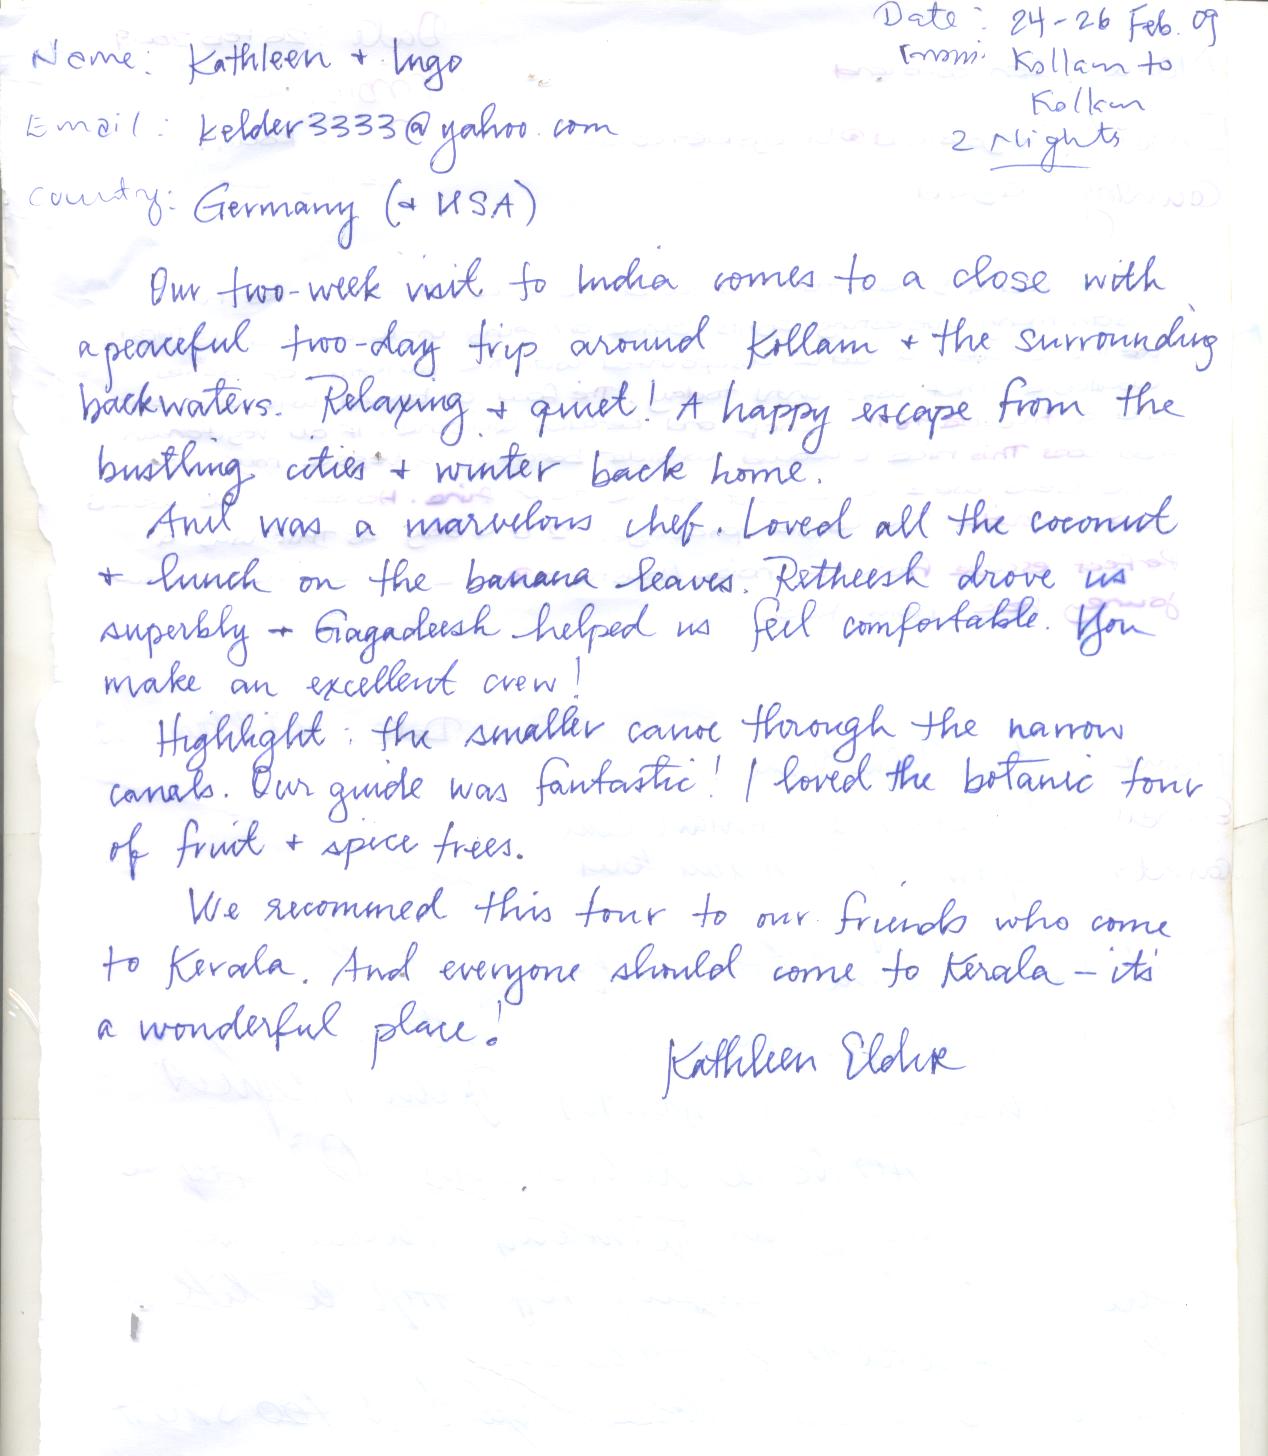 Date: 24-26 Feb. 09
Name: Kathleen + Ingo
From: Kollam to
Kollam
Email: kelder3333@yahoo.com
2 Nights
Country: Germany (+ USA)
Our two-week visit to India comes to a close with
a peaceful two-day trip around Kollam + the surrounding
backwaters. Relaxing + quiet! A happy escape from the
bustling cities + winter back home.
Anil was a marvelous chef. Loved all the coconut
+ lunch on the banana leaves. Retheesh drove us
superbly + Gagadeesh helped us feel comfortable. You
make an excellent crew!
Highlight: the smaller canoe through the narrow
canals. Our guide was fantastic! I loved the botanic tour
of fruit + spice trees.
We recommed this tour to our friends who come
to Kerala. And everyone should come to Kerala - it's
a wonderful place!
Kathleen Elder